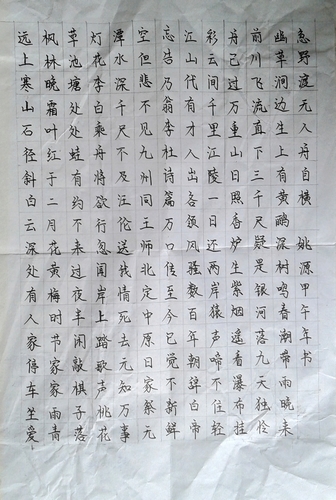 急野渡无人舟自横 桃源甲午年书
幽草涧边生上有黄鹂深树鸣春潮带雨晚来
前川飞流直下三千尺疑是银河落九天独怜
舟已过万重山日照香炉生紫烟遥看瀑布挂
彩云间千里江陵一日还两岸猿声啼不住轻
江山代有才人出各领风骚数百年朝辞白帝
忘告乃翁李杜诗篇万口传至今已觉不新鲜
空但悲不见九州同王师北定中原日家祭无
潭水深千尺不及汪伦送我情死去元知万事
灯花李白乘舟将欲行忽闻岸上踏歌声桃花
草池塘处处蛙有约不来过夜半闲敲棋子落
枫林晚霜叶红于二月花黄梅时节家家雨青
远上寒山石径斜白云深处有人家停车坐爱